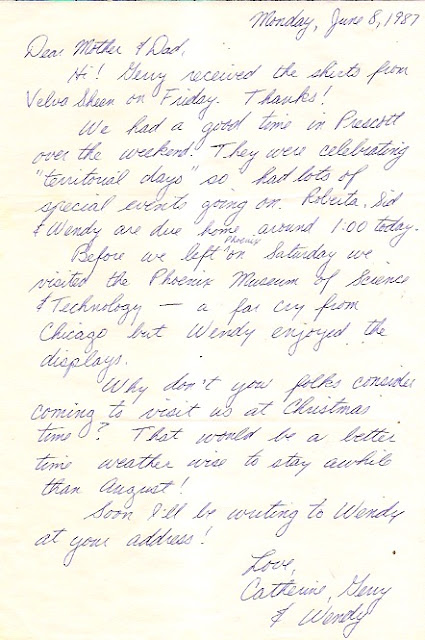 Monday, June 8, 1987
Dear Mother & Dad,
Hi! Gerry received the shirts from
Velva Sheen on Friday. Thanks!
We had a good time in Prescott
over the weekend. They were celebrating
"territorial days" so had lots of
special events going on. Roberta, Sid
& Wendy are due home around 1:00 today.
Before we left Phoenix on Saturday we
visited the Phoenix Museum of Science
& Technology — a far cry from
Chicago but Wendy enjoyed the
displays.
Why don't you folks consider
coming to visit us at Christmas
time? That would be a better
time weather wise to stay awhile
than August!
Soon I'll be writing to Wendy
at your address!
Love,
Catherine, Gerry
& Wendy